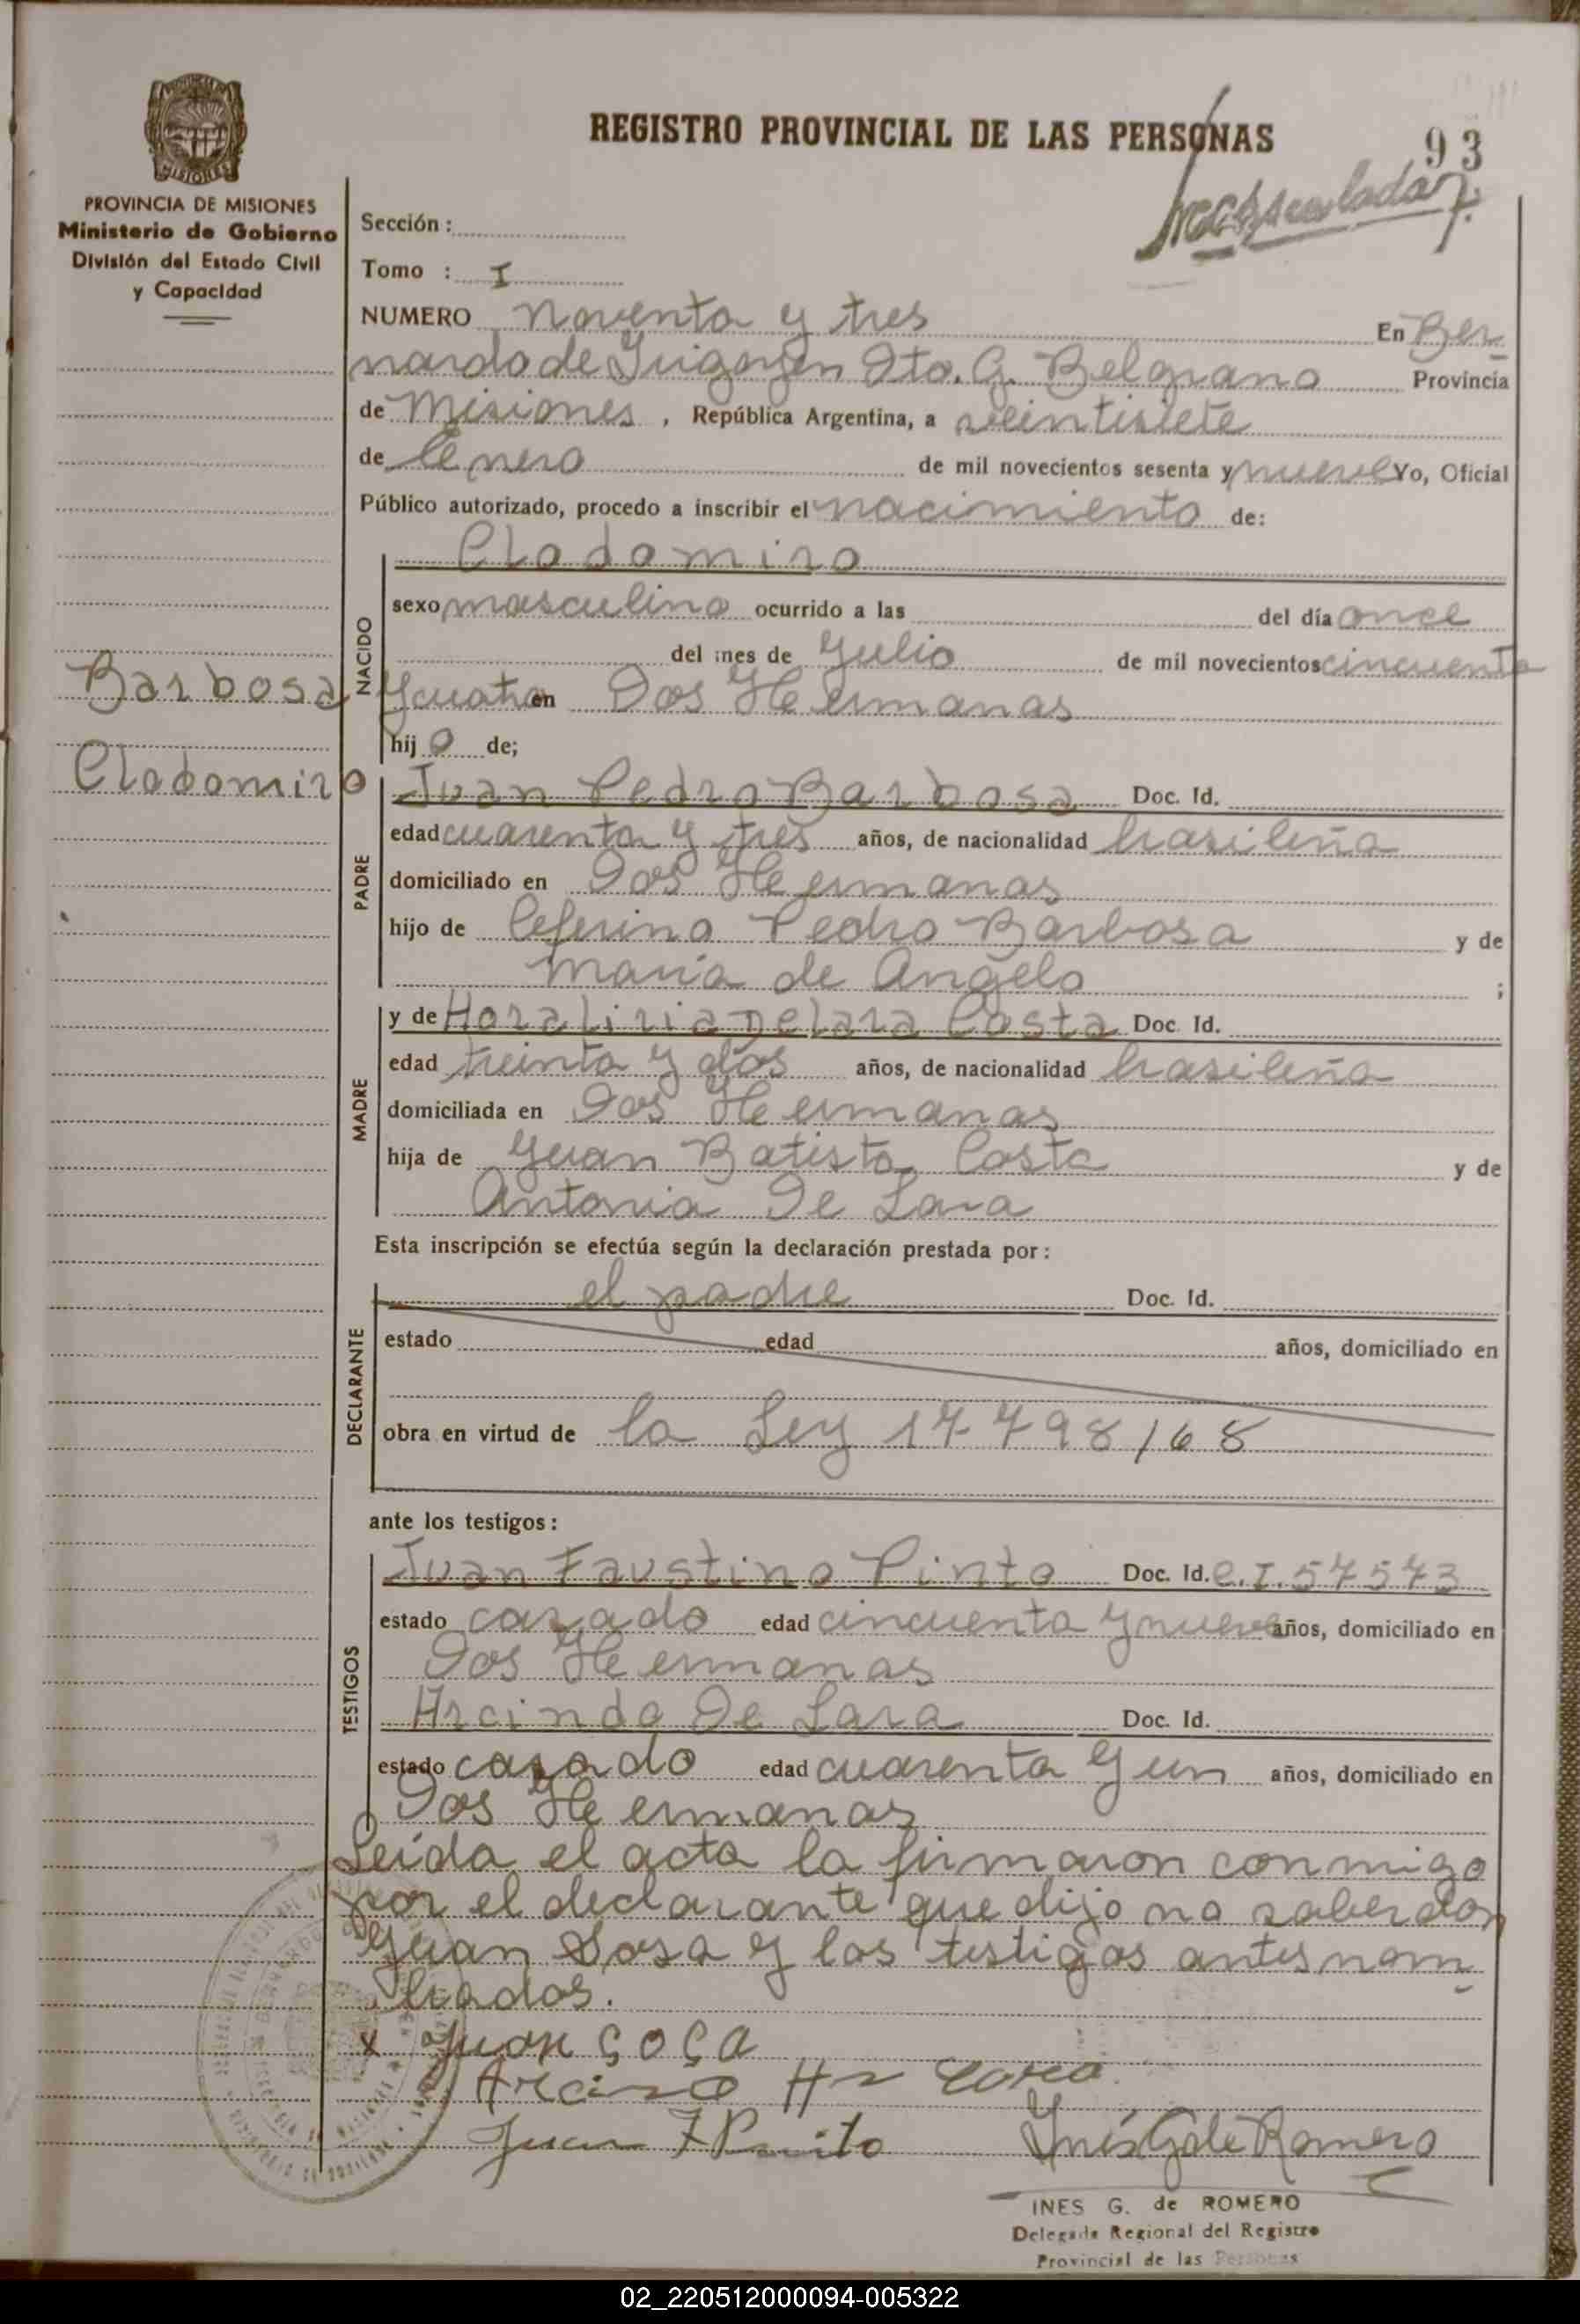 REGISTRO PROVINCIAL DE LAS PERSONAS
93
PROVINCIA DE MISIONES
Ministerio de Gobierno
División del Estado Civil
y Capacidad
Sección:
Tomo : I
NUMERO Noventa y tres En Ber
nardo de Irigoyen Dto. G. Belgrano Provincia
de Misiones, República Argentina, a veintisiete
de Enero de mil novecientos sesenta y nueve Yo, Oficial
Público autorizado, procedo a inscribir el nacimiento de:
Clodomiro
NACIDO
sexo masculino ocurrido a las del día once
del mes de Julio de mil novecientos cincuenta
Barbosa
y cuatro en Dos Hermanas
hijo de;
Clodomiro
PADRE
Juan Pedro Barbosa Doc. Id.
edad cuarenta y tres años, de nacionalidad brasileña
domiciliado en Dos Hermanas
hijo de Ceferino Pedro Barbosa y de
Maria de Angelo ;
MADRE
y de Horaliria De Lara Costa Doc. Id.
edad treinta y dos años, de nacionalidad brasileña
domiciliada en Dos Hermanas
hija de Juan Batista Costa y de
Antonia De Lara
Esta inscripción se efectúa según la declaración prestada por:
DECLARANTE
el padre Doc. Id.
estado edad años, domiciliado en
obra en virtud de la Ley 17798/68
ante los testigos:
TESTIGOS
Juan Faustino Pinto Doc. Id. C.I. 57573
estado casado edad cincuenta y nueve años, domiciliado en
Dos Hermanas
Arcindo De Lara Doc. Id.
estado casado edad cuarenta y un años, domiciliado en
Dos Hermanas
Leída el acta la firmaron conmigo
por el declarante que dijo no saber don
Juan Sosa y los testigos antes nom
brados.
x Juan Soça
Juan F Pinto Inés G de Romero
INES G. de ROMERO
Delegada Regional del Registro
Provincial de las Personas
02_220512000094-005322